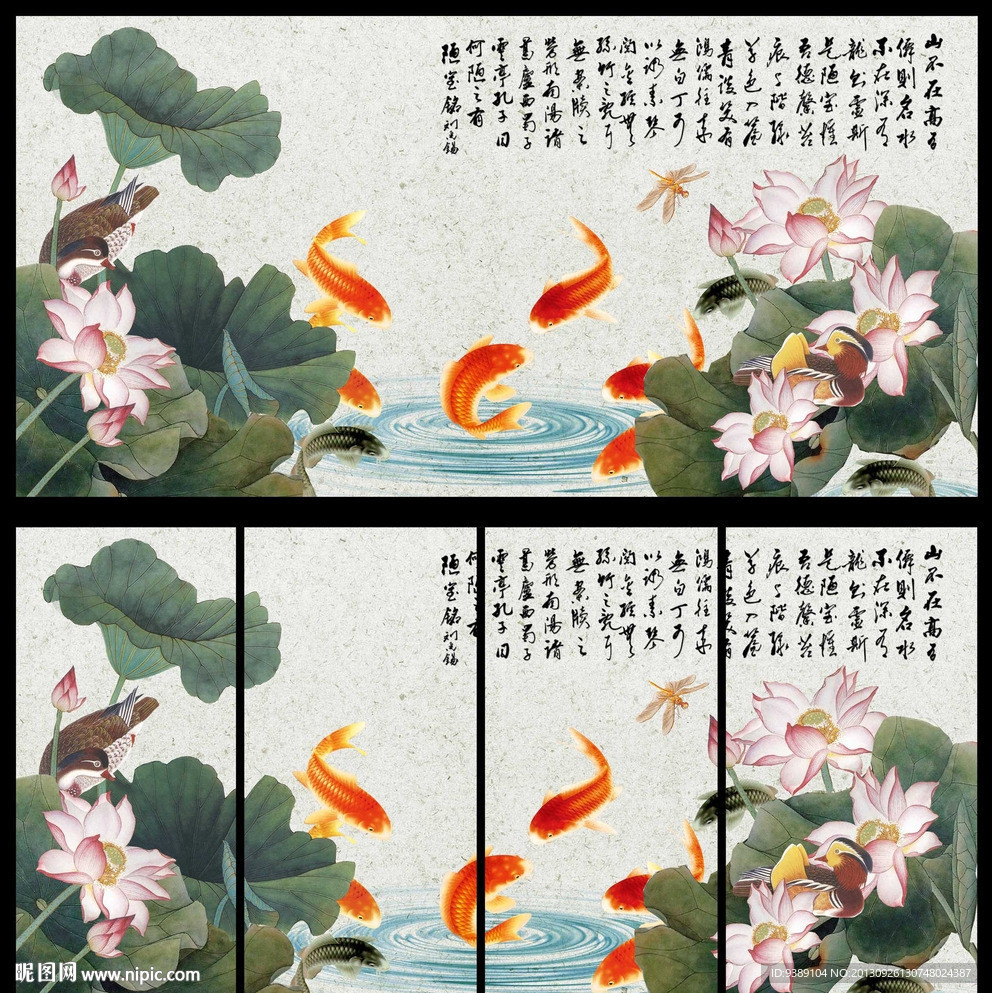 山不在高有
僊則名水
不在深有
龍則靈斯
是陋室惟
吾德馨苔
痕上階綠
草色入簾
青談笑有
鴻儒往來
無白丁可
以調素琴
閱金經無
絲竹之亂耳
無案牘之
勞形南陽諸
葛廬西蜀子
雲亭孔子曰
何陋之有
陋室銘 劉禹錫
山不在高有
僊則名水
不在深有
龍則靈斯
是陋室惟
吾德馨苔
痕上階綠
草色入簾
青談笑有
鴻儒往來
無白丁可
以調素琴
閱金經無
絲竹之亂耳
無案牘之
勞形南陽諸
葛廬西蜀子
雲亭孔子曰
何陋之有
陋室銘 劉禹錫
昵图网 www.nipic.com
ID:9389104 NO:20130926130748024387